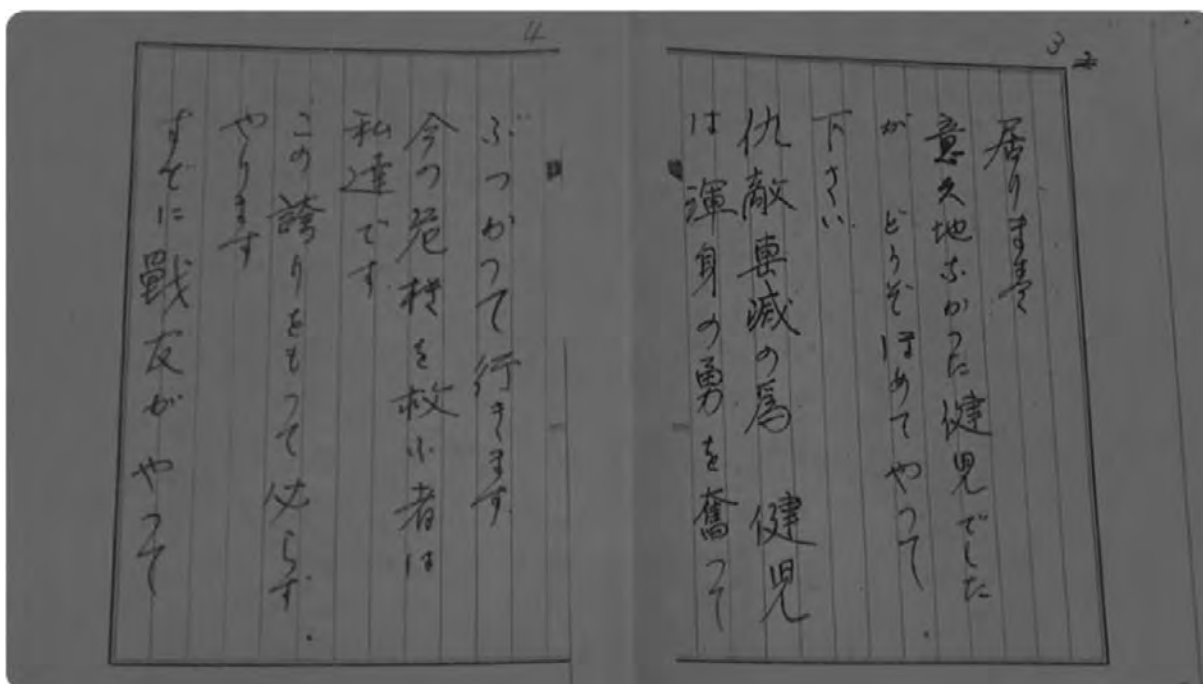 3
居ります
意久地なかつた健児でした
が どうぞほめてやつて
下さい
仇敵撃滅の為 健児
は渾身の勇を奮つて
4
ぶつかつて行きます
今の危機を救ふ者は
私達です
この誇りをもつて必らず
やります
すでに戰友がやつて